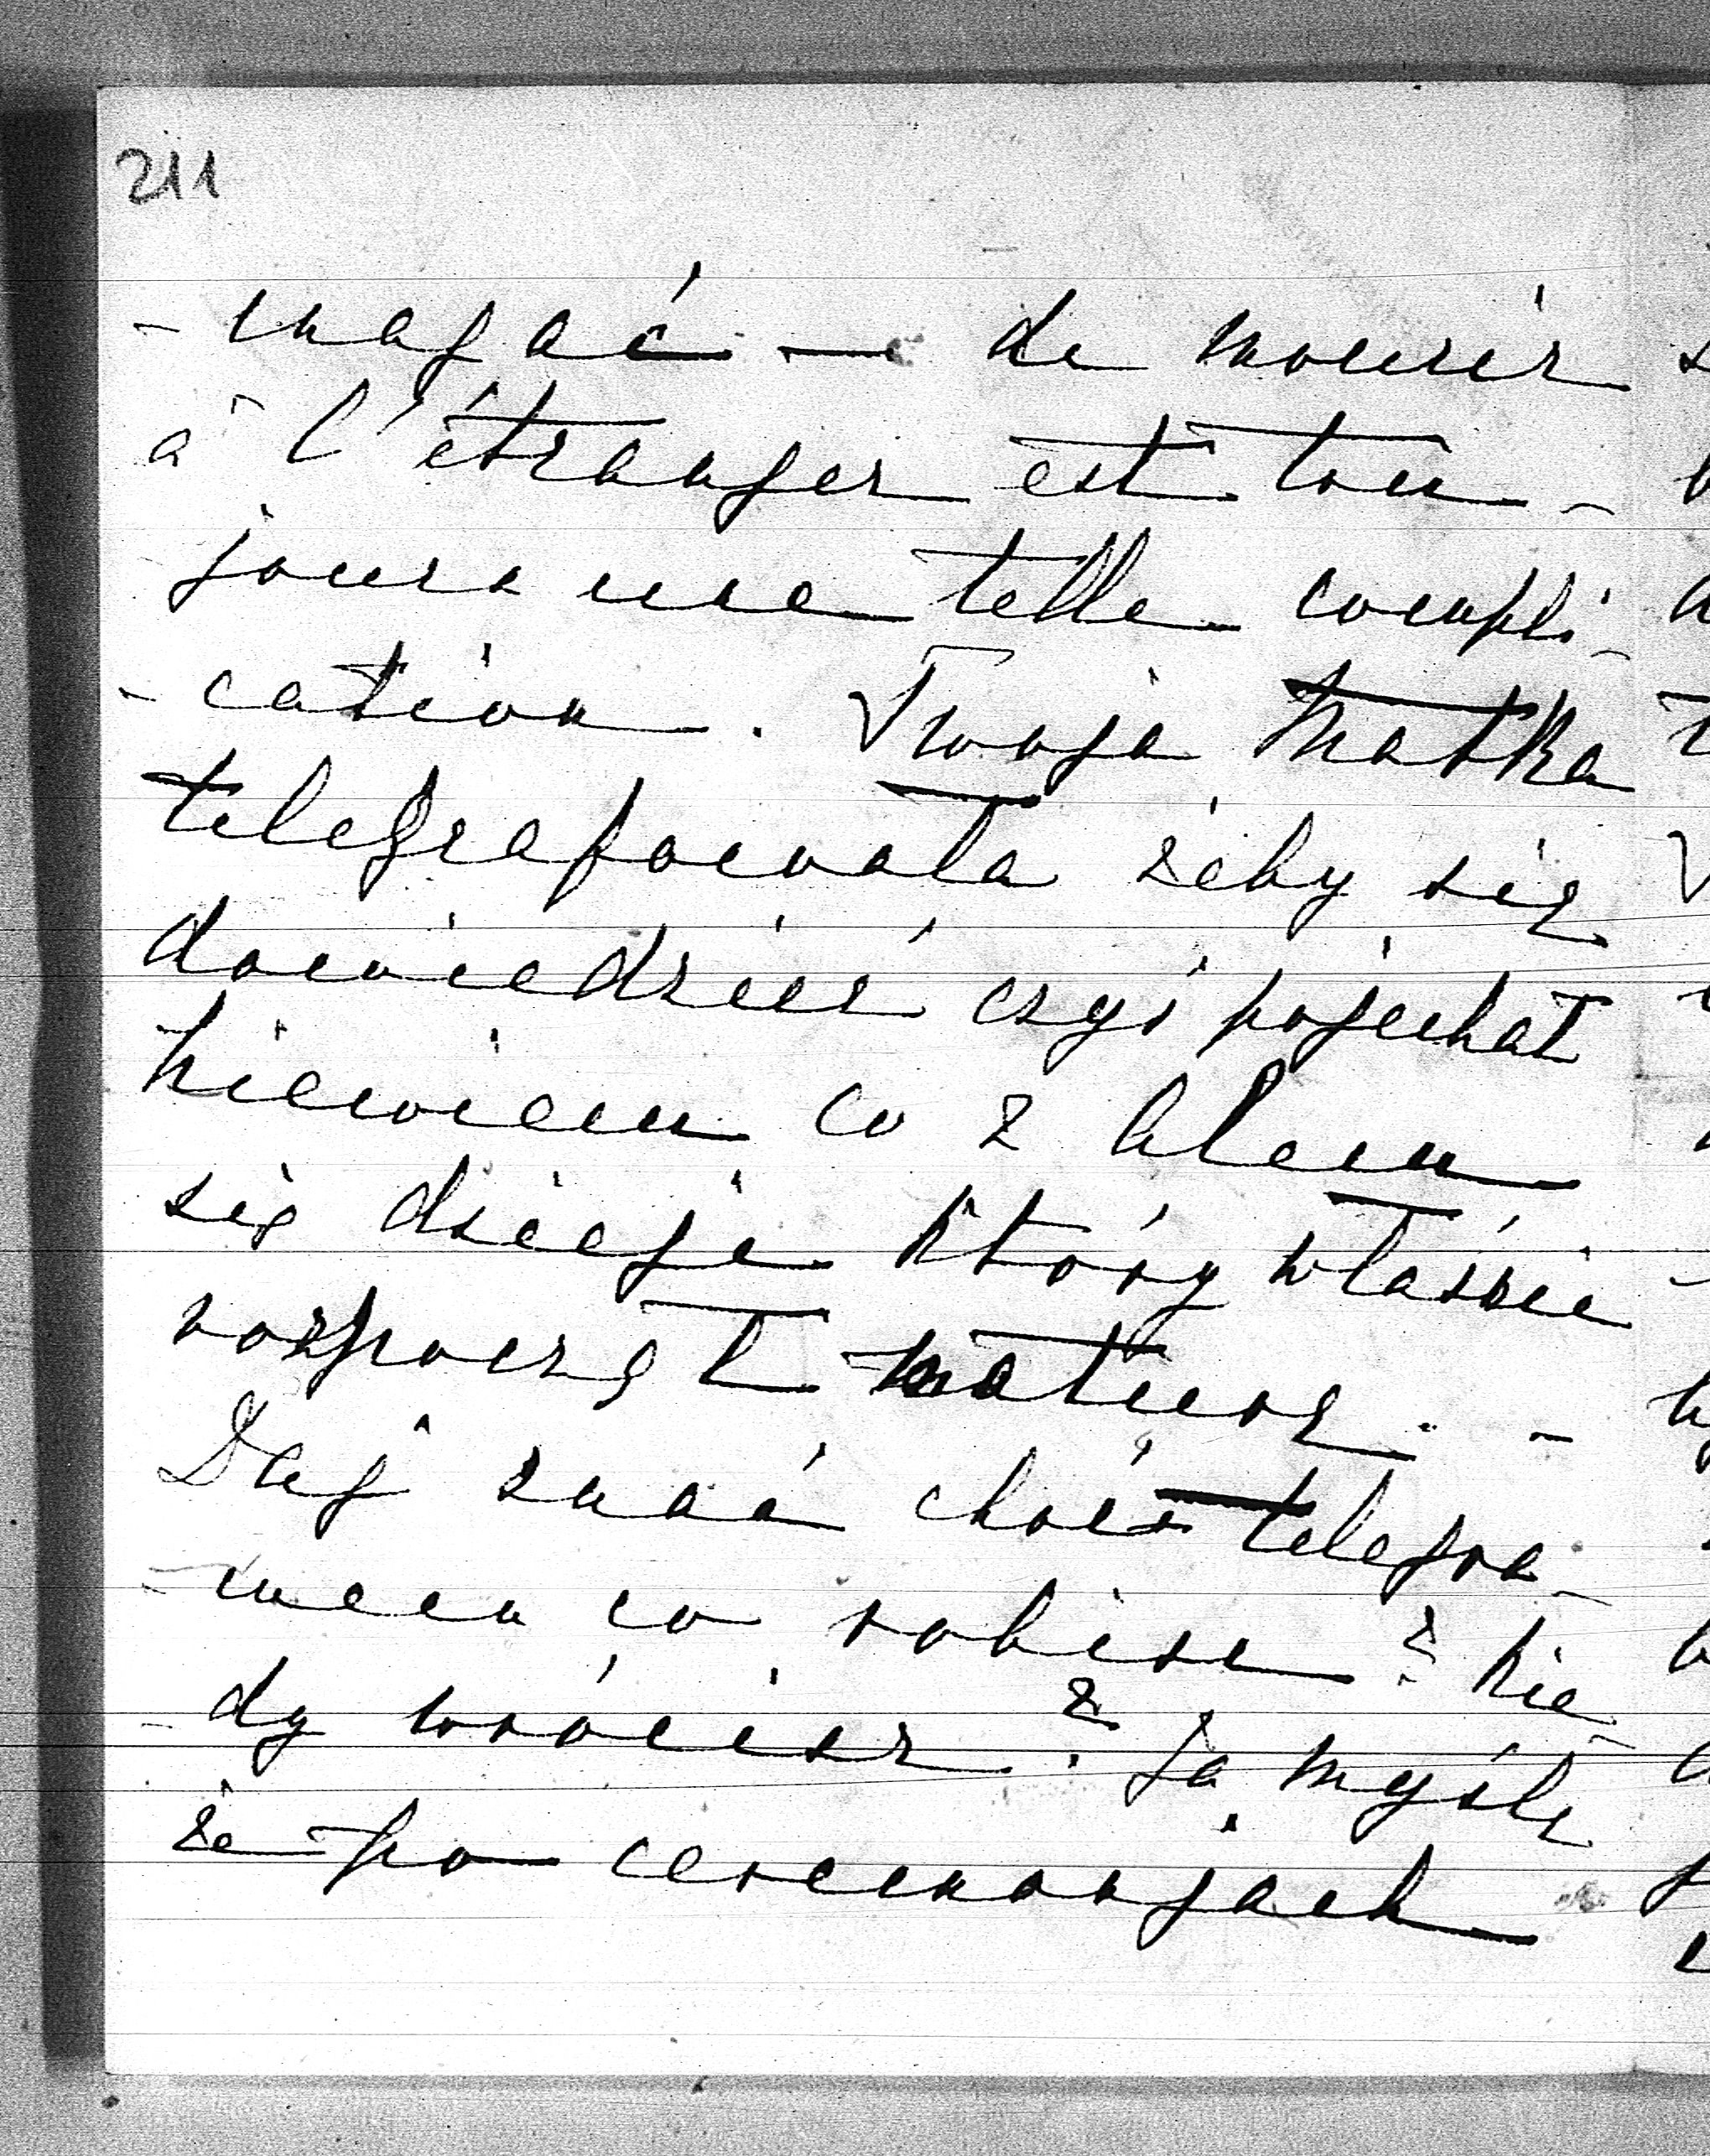 211
- magać — de mourir
à l'étranger est tou -
jours une telle compli -
- cation. Twoja Matka
telegrafowała żeby się
dowiedzieć czyś pojechał
niewiem co z
się dzieje który właśnie
rozpoczął maturę. -
Daj znać choć telegra -
- mem co robisz? kie
- dy wrócisz? Ja myślę
że po ceremonjach